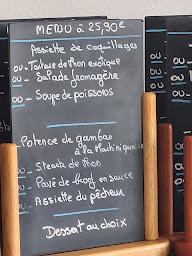 MENU à 25,90€
Assiette de coquillages
ou - Tartare de thon exotique
ou - Salade fromagère
ou - Soupe de poissons
Potence de gambas
à la Martiniquaise
ou - Steack de thon
ou - Pavé de boeuf en sauce
ou - Assiette du pêcheur
Dessert au choix
ou
ou
ou
ou
ou